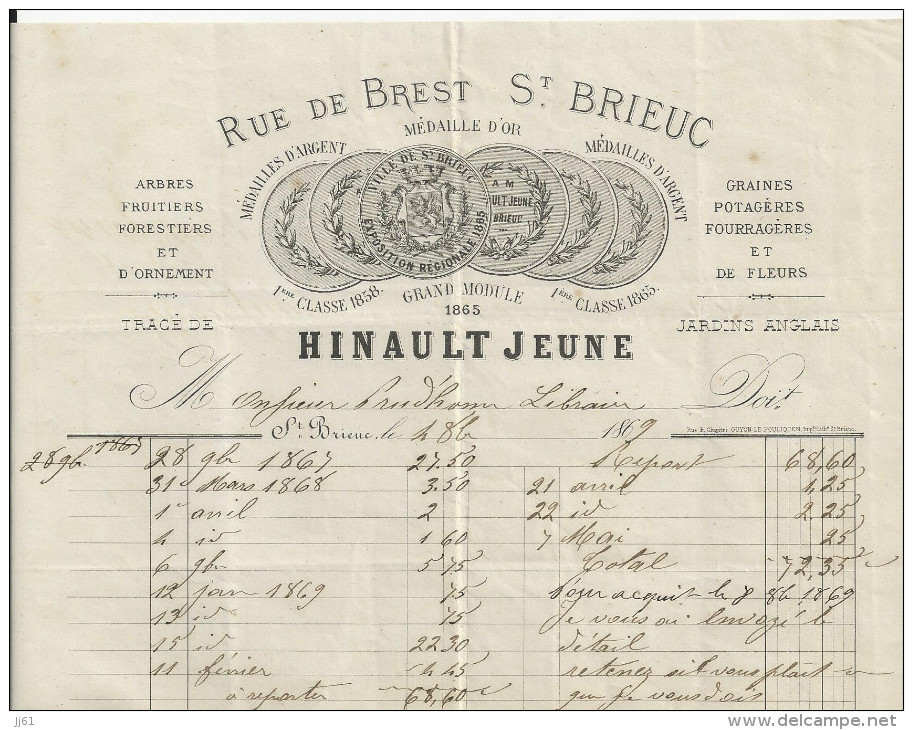 RUE DE BREST ST BRIEUC
MÉDAILLES D'ARGENT
MÉDAILLE D'OR
MÉDAILLES D'ARGENT
VILLE DE ST BRIEUC
EXPOSITION RÉGIONALE 1865
A M
ULT JEUNE
BRIEUC
1ERE CLASSE 1858.
GRAND MODULE
1865
1ERE CLASSE 1865.
ARBRES
FRUITIERS
FORESTIERS
ET
D'ORNEMENT
GRAINES
POTAGÈRES
FOURRAGÈRES
ET
DE FLEURS
TRACÉ DE
JARDINS ANGLAIS
HINAULT JEUNE
Monsieur Prud'hom Libraire Doit
St Brieuc, le 4 8b 1869
28 9b. 1867
28 9b 1867 27.50
31 Mars 1868 3.50
1er avril 2
4 id 1 60
6 9b 5 75
12 jan 1869 75
13 id 75
15 id 22 30
11 février 4 45
à reporter 68,60
Report 68,60
21 avril 1,25
22 id 2 25
7 Mai 25
Total 72,35
Pour acquit le 8 8b 1869
Je vous ai envoyé le
détail
retenez sil vous plait
que je vous dois
jj61
www.delcampe.net